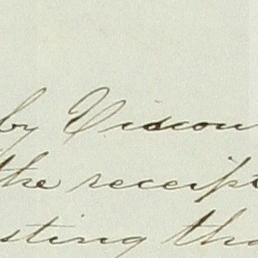 by Viscou
the receipt
sting tha